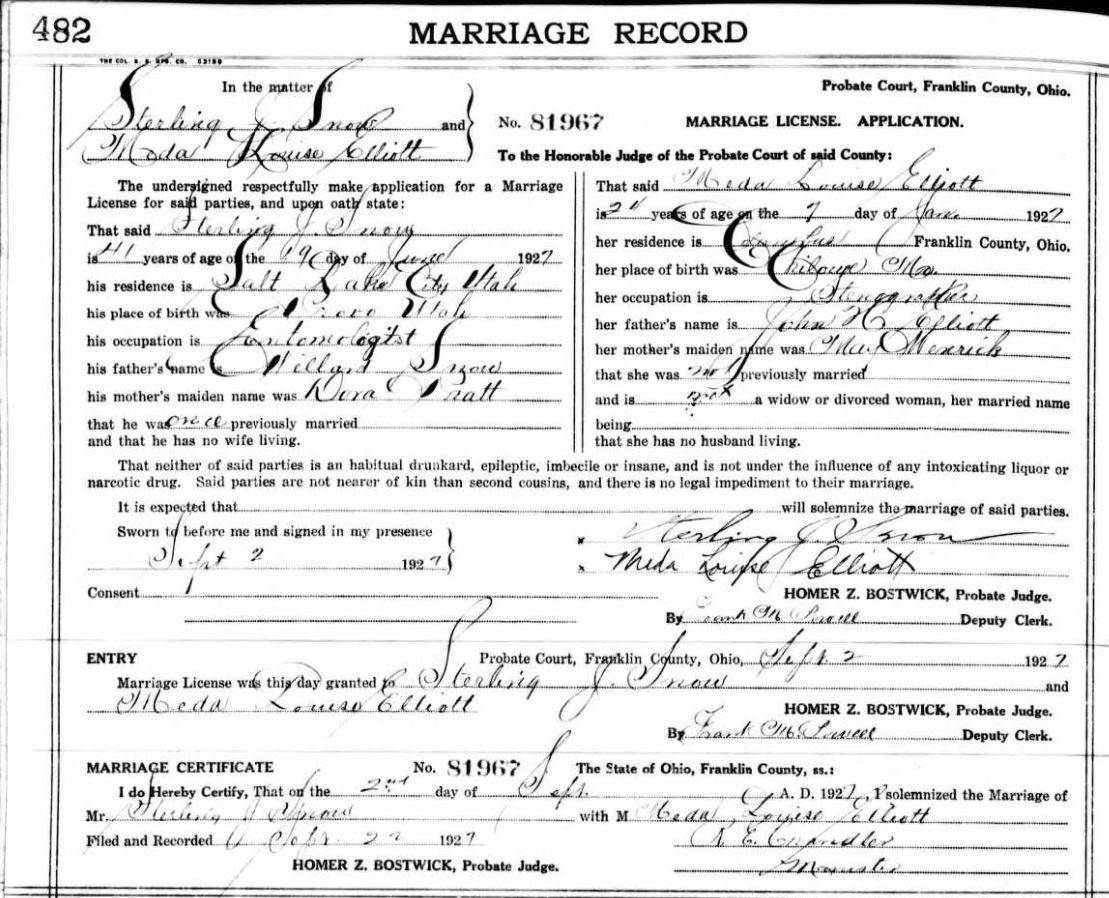 482 MARRIAGE RECORD
THE COL. B. B. MFG. CO. 63199
In the matter of
Sterling J. Snow and
Meda Louise Elliott
Probate Court, Franklin County, Ohio.
No. 81967 MARRIAGE LICENSE. APPLICATION.
To the Honorable Judge of the Probate Court of said County:
The undersigned respectfully make application for a Marriage
License for said parties, and upon oath state:
That said Sterling J. Snow
is 41 years of age of the 19 day of June 1927
his residence is Salt Lake City Utah
his place of birth was Provo Utah
his occupation is Entomologist
his father's name is Willard Snow
his mother's maiden name was Dora Pratt
that he was once previously married
and that he has no wife living.
That said Meda Louise Elliott
is 24 years of age on the 7 day of Jan. 1927
her residence is Columbus Franklin County, Ohio.
her place of birth was Mo.
her occupation is Stenographer
her father's name is John Elliott
her mother's maiden name was May
that she was not previously married
and is not a widow or divorced woman, her married name
being
that she has no husband living.
That neither of said parties is an habitual drunkard, epileptic, imbecile or insane, and is not under the influence of any intoxicating liquor or
narcotic drug. Said parties are not nearer of kin than second cousins, and there is no legal impediment to their marriage.
It is expected that will solemnize the marriage of said parties.
Sworn to before me and signed in my presence
Sept 2 1927
x Sterling J. Snow
x Meda Louise Elliott
Consent
HOMER Z. BOSTWICK, Probate Judge.
By Frank M. Deputy Clerk.
ENTRY Probate Court, Franklin County, Ohio, Sept. 2 1927
Marriage License was this day granted to Sterling J. Snow and
Meda Louise Elliott
HOMER Z. BOSTWICK, Probate Judge.
By Frank M. Deputy Clerk.
MARRIAGE CERTIFICATE No. 81967 The State of Ohio, Franklin County, ss.:
I do Hereby Certify, That on the 2nd day of Sept. A. D. 1927, I solemnized the Marriage of
Mr. Sterling J Snow with M Meda Louise Elliott
Filed and Recorded Sept. 1927 Chandler
HOMER Z. BOSTWICK, Probate Judge. Minister